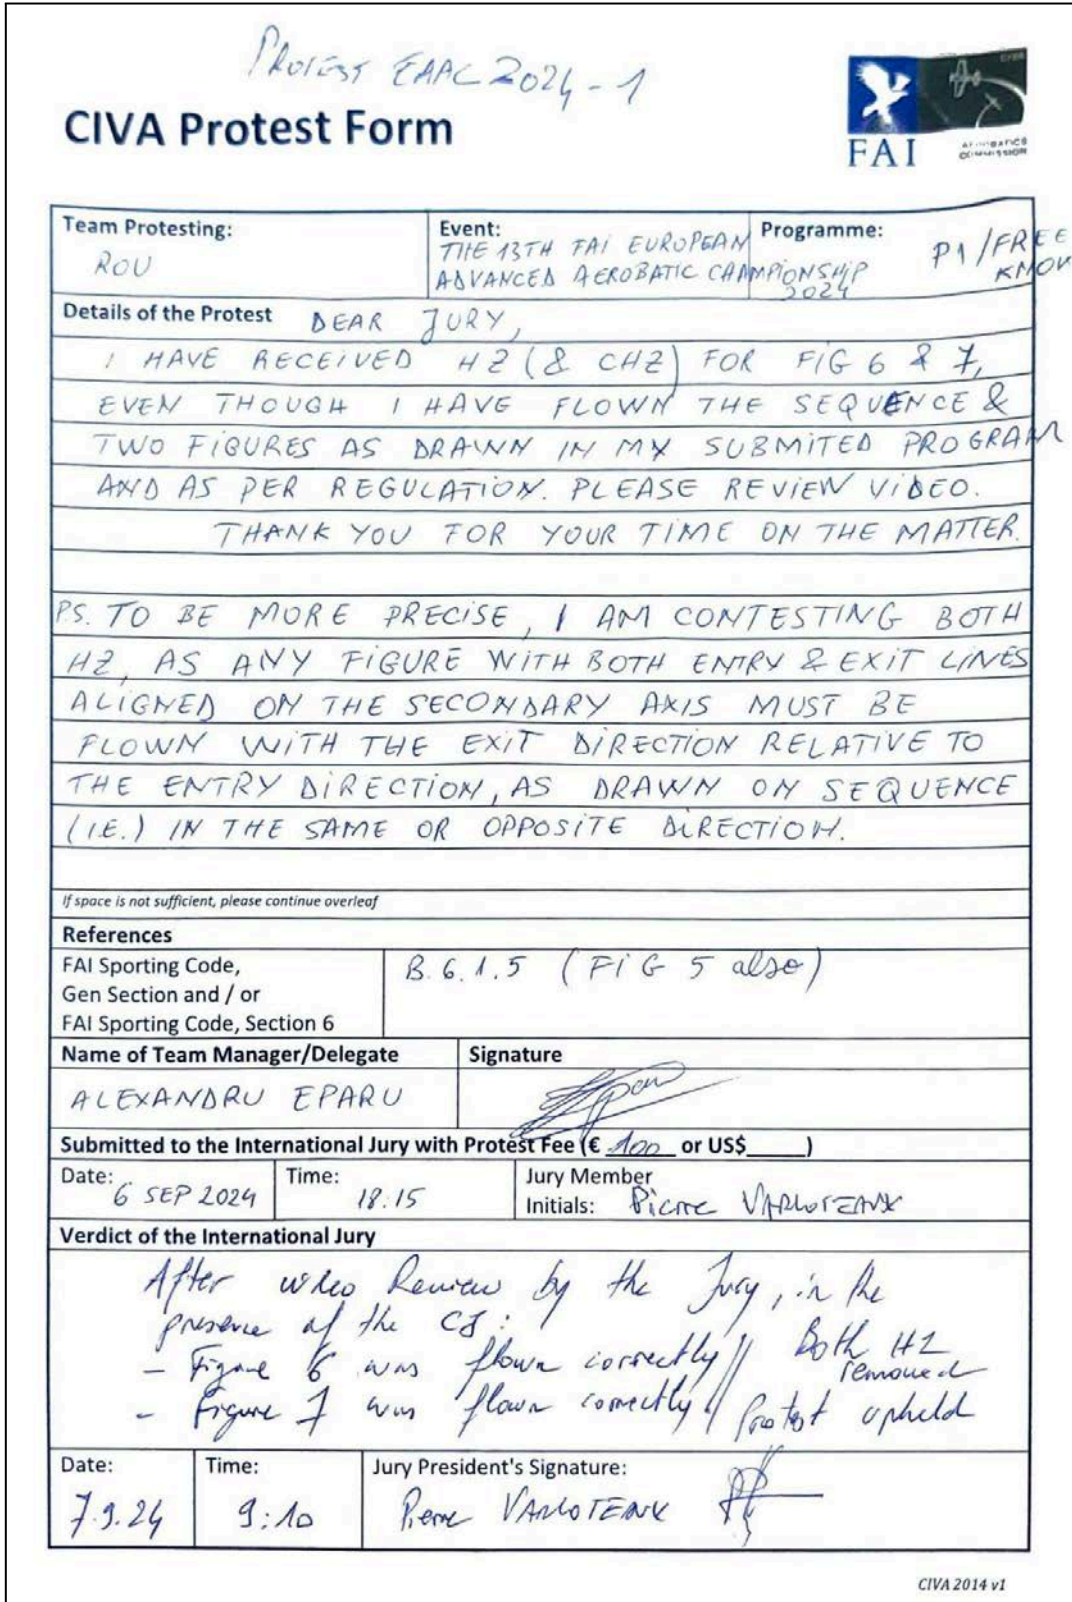 PROTEST EAAC 2024-1
CIVA Protest Form
FAI
AEROBATICS
COMMISSION
Team Protesting:
ROU
Event:
THE 13TH FAI EUROPEAN
ADVANCED AEROBATIC CHAMPIONSHIP
2024
Programme:
P1/FREE
KNOW
Details of the Protest DEAR JURY,
I HAVE RECEIVED HZ (& CHZ) FOR FIG 6 & 7,
EVEN THOUGH I HAVE FLOWN THE SEQUENCE &
TWO FIGURES AS DRAWN IN MY SUBMITED PROGRAM
AND AS PER REGULATION. PLEASE REVIEW VIDEO.
THANK YOU FOR YOUR TIME ON THE MATTER.
PS. TO BE MORE PRECISE, I AM CONTESTING BOTH
HZ, AS ANY FIGURE WITH BOTH ENTRY & EXIT LINES
ALIGNED ON THE SECONDARY AXIS MUST BE
FLOWN WITH THE EXIT DIRECTION RELATIVE TO
THE ENTRY DIRECTION, AS DRAWN ON SEQUENCE
(I.E.) IN THE SAME OR OPPOSITE DIRECTION.
If space is not sufficient, please continue overleaf
References
FAI Sporting Code,
Gen Section and / or
FAI Sporting Code, Section 6
B.6.1.5 (FIG 5 also)
Name of Team Manager/Delegate
ALEXANDRU EPARU
Signature
Submitted to the International Jury with Protest Fee (€ 100 or US$_____)
Date:
6 SEP 2024
Time:
18:15
Jury Member
Initials: Pierre VARLOTEAUX
Verdict of the International Jury
After video Review by the Jury, in the
presence of the CJ:
- Figure 6 was flown correctly // Both HZ removed
- Figure 7 was flown correctly // Protest upheld
Date:
7.9.24
Time:
9:10
Jury President's Signature:
Pierre VARLOTEAUX
CIVA 2014 v1